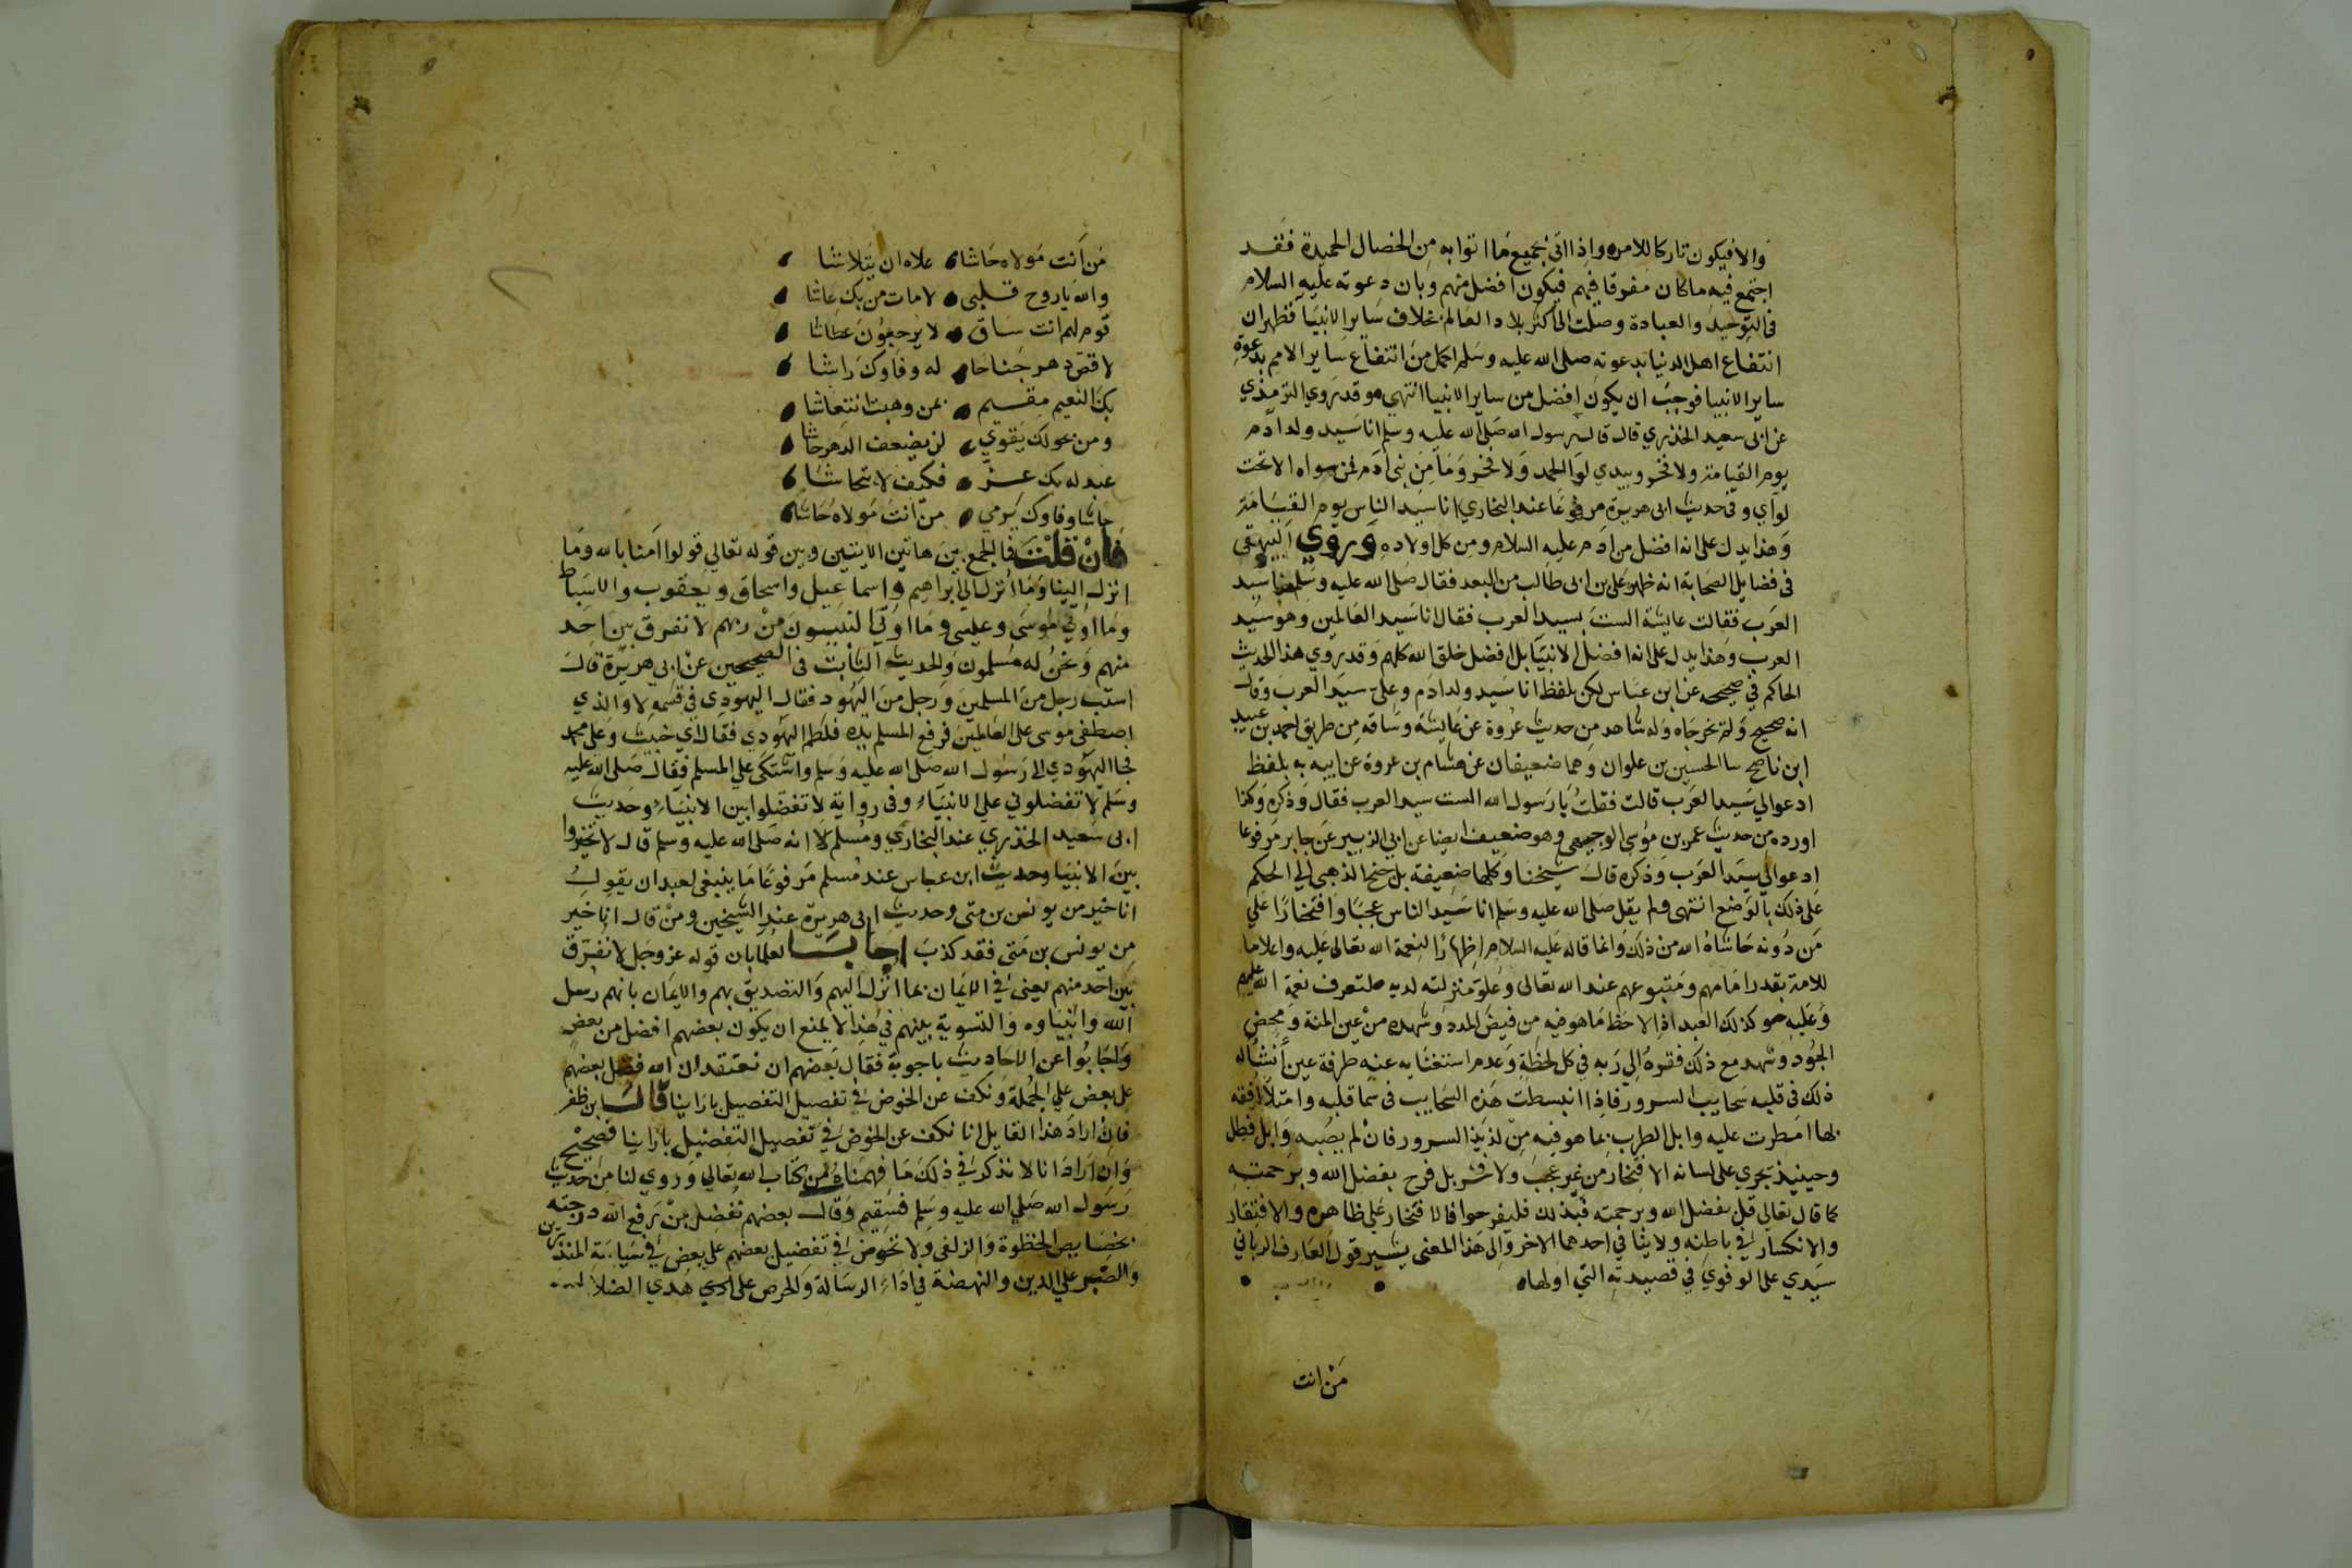 والا فيكون تاركا للامر واذا اتى بجميع ما اتوا به من الخصال الحميدة فقد
اجتمع فيه ما كان مفرقا فيهم فيكون افضل منهم وبان دعوته عليه السلام
فى التوحيد والعبادة وصلت الى اكثر بلاد العالم بخلاف ساير الانبيا فظهر ان
انتفاع اهل الدنيا بدعوته صلى الله عليه وسلم اكمل من انتفاع ساير الامم بدعوة
ساير الانبيا فوجب ان يكون افضل من ساير الانبيا انتهى وقد روي الترمذي
عن ابى سعيد الخدري قال قال رسول الله صلى الله عليه وسلم انا سيد ولد ادم
يوم القيامة ولا فخر وبيدي لوا الحمد ولا فخر وما من نبى ادم فمن سواه الا تحت
لوآي وفى حديث ابى هريرة مرفوعا عند البخاري انا سيد الناس يوم القيامة
وهذا يدل على انه افضل من ادم عليه السلام ومن كل اولاده وروي البيهقى
فى فضايل الصحابة انه ظهر على بن ابى طالب من البعد فقال صلى الله عليه وسلم هذا سيد
العرب فقالت عايشة الست بسيد العرب فقال انا سيد العالمين وهو سيد
العرب وهذا يدل على انه افضل الانبيا بل افضل خلق الله كلهم وقد روي هذا الحديث
الحاكم في صحيحه عن ابن عباس لكن بلفظ انا سيد ولد ادم وعلى سيد العرب وقال
انه صحيح ولم يخرجاه وله شاهد من حديث عروة عن عايشة وساقه من طريق احمد بن عبيد
ابن ناصح سا الحسين بن علوان وهما ضعيفان عن هشام بن عروة عن ابيه به بلفظ
ادعوا لي سيد العرب قالت فقلت يا رسول الله الست سيد العرب فقال وذكره وكذا
اورده من حديث عمر بن موسى الوجيهى وهو ضعيف ايضا عن ابي الزبير عن جابر مرفوعا
ادعوا لي سيد العرب وذكره قال شيخنا وكلها ضعيفة بل جنح الذهبى الي الحكم
على ذلك بالوضع انتهى ولم يقل صلى الله عليه وسلم انا سيد الناس عجبا وافتخارا على
من دونه حاشاه الله من ذلك وانما قاله عليه السلام اظهارا لنعمة الله تعالى عليه واعلاما
للامة بقدر امامهم ومتبوعهم عند الله تعالى وعلو منزلته لديه لتعرف نعمة الله عليهم
وعليه وكذلك العبد اذا لاحظ ما هو فيه من فيض المدد وشهده من عين المنة ومحض
الجود وشهد مع ذلك فقره الى ربه في كل لحظة وعدم استغنايه عنه طرفة عين أنشأ له
ذلك فى قلبه سحايب السرور فاذا انبسطت هذه السحايب فى سما قلبه وامتلا افقه
بها امطرت عليه وابل الطرب بما هو فيه من لذيذ السرور فان لم يصبه وابل فطل
وحينيذ يجري على لسانه الافتخار من غير عجب ولا فخر بل فرح بفضل الله وبرحمته
كما قال تعالى قل بفضل الله وبرحمته فبذلك فليفرحوا فالافتخار على ظاهره والافتقار
والانكسار في باطنه ولا ينافي احدهما الاخر والى هذا المعنى يشير قول العارف الربانى
سيدي على الوفوي في قصيدته التى اولها
من انت
من أنت مولاه حاشا علاه ان يتلاشا
والله يا روح قلبى لا مات من بك عاشا
قوم لهم انت ساق لا يرجعون عطاشا
لا قص دهر جناحا له وفاوك راشا
بك النعيم مقيم بمن وهبت انتعاشا
ومن بحولك يقوي لن يضعف الدهر جاشا
عبد له بك عز فكيف لا يتحاشا
حاشا وفاوك يرمي من انت مولاه حاشا
فان قلت فما الجمع بين هاتين الايتين وبين قوله تعالي قولوا امنا بالله وما
انزل الينا وما انزل الى ابراهيم واسماعيل واسحاق ويعقوب والاسباط
وما اوتي موسى وعيسى وما اوتي النبيون من ربهم لا نفرق بين احد
منهم ونحن له مسلمون والحديث الثابت فى الصحيحين عن ابي هريرة قال
استب رجل من المسلمين ورجل من اليهود فقال اليهودي في قسمه لا والذي
اصطفى موسى على العالمين فرفع المسلم يده فلطم اليهودي فقال اي خبيث وعلى محمد
فجا اليهودي الى رسول الله صلى الله عليه وسلم واشتكى علي المسلم فقال صلى الله عليه
وسلم لا تفضلوني على الانبياء وفى رواية لا تفضلوا بين الانبياء وحديث
ابى سعيد الخدري عند البخاري ومسلم انه صلى الله عليه وسلم قال لا تخيروا
بين الانبيا وحديث ابن عباس عند مسلم مرفوعا ما ينبغى لعبد ان يقول
انا خير من يونس بن متى وحديث ابى هريرة عند الشيخين ومن قال انا خير
من يونس بن متى فقد كذب اجاب العلما بان قوله عز وجل لا نفرق
بين احد منهم يعنى في الايمان بما انزل اليهم والتصديق بهم والايمان بانهم رسل
الله وانبياوه والتسوية بينهم في هذا لا يمنع ان يكون بعضهم افضل من بعض
واجابوا عن الاحاديث باجوبة فقال بعضهم ان نعتقد ان الله فضل بعضهم
على بعض علي الجملة ونكف عن الخوض في تفصيل التفضيل بارائنا قال ابن ظفر
فان اراد هذا القايل انا نكف عن الخوض في تفصيل التفضيل بارائنا فصحيح
وان اراد انا لا نذكر في ذلك ما فهمناه من كتاب الله تعالي وروي لنا من حديث
رسول الله صلي الله عليه وسلم فسقيم وقال بعضهم تفضل من رفع الله درجته
بخصايص الحظوة والزلفى ولا نخوض في تفضيل بعضهم على بعض في سياسة المنذرين
والصبر على الدين والنهضة في اداء الرسالة والحرص على هدي الضلال